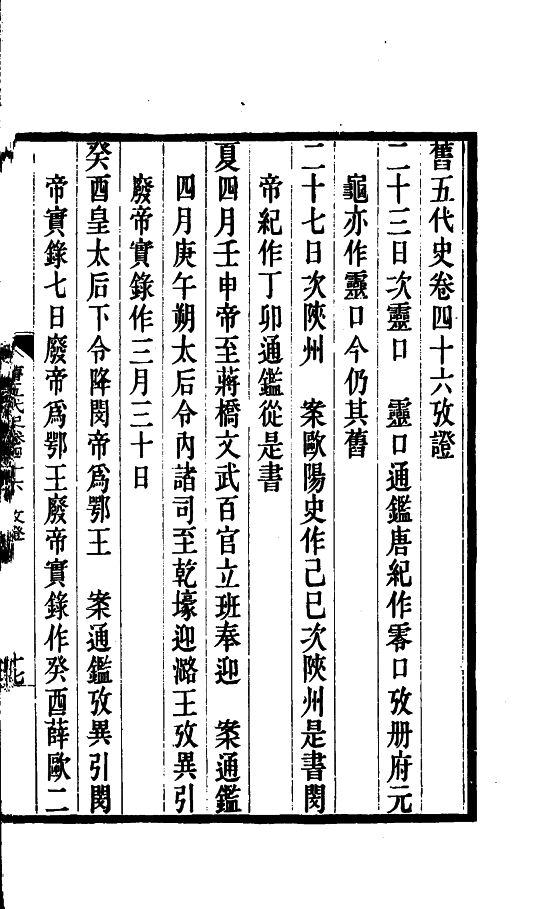 舊五代史卷四十六攷證
二十三日次靈口　靈口通鑑唐紀作零口攷册府元
龜亦作靈口今仍其舊
二十七日次陝州　案歐陽史作己巳次陝州是書閔
帝紀作丁卯通鑑從是書
夏四月壬申帝至蔣橋文武百官立班奉迎　案通鑑
四月庚午朔太后令內諸司至乾壕迎潞王攷異引
廢帝實錄作三月三十日
癸酉皇太后下令降閔帝爲鄂王　案通鑑攷異引閔
帝實錄七日廢帝爲鄂王廢帝實錄作癸酉薛歐二